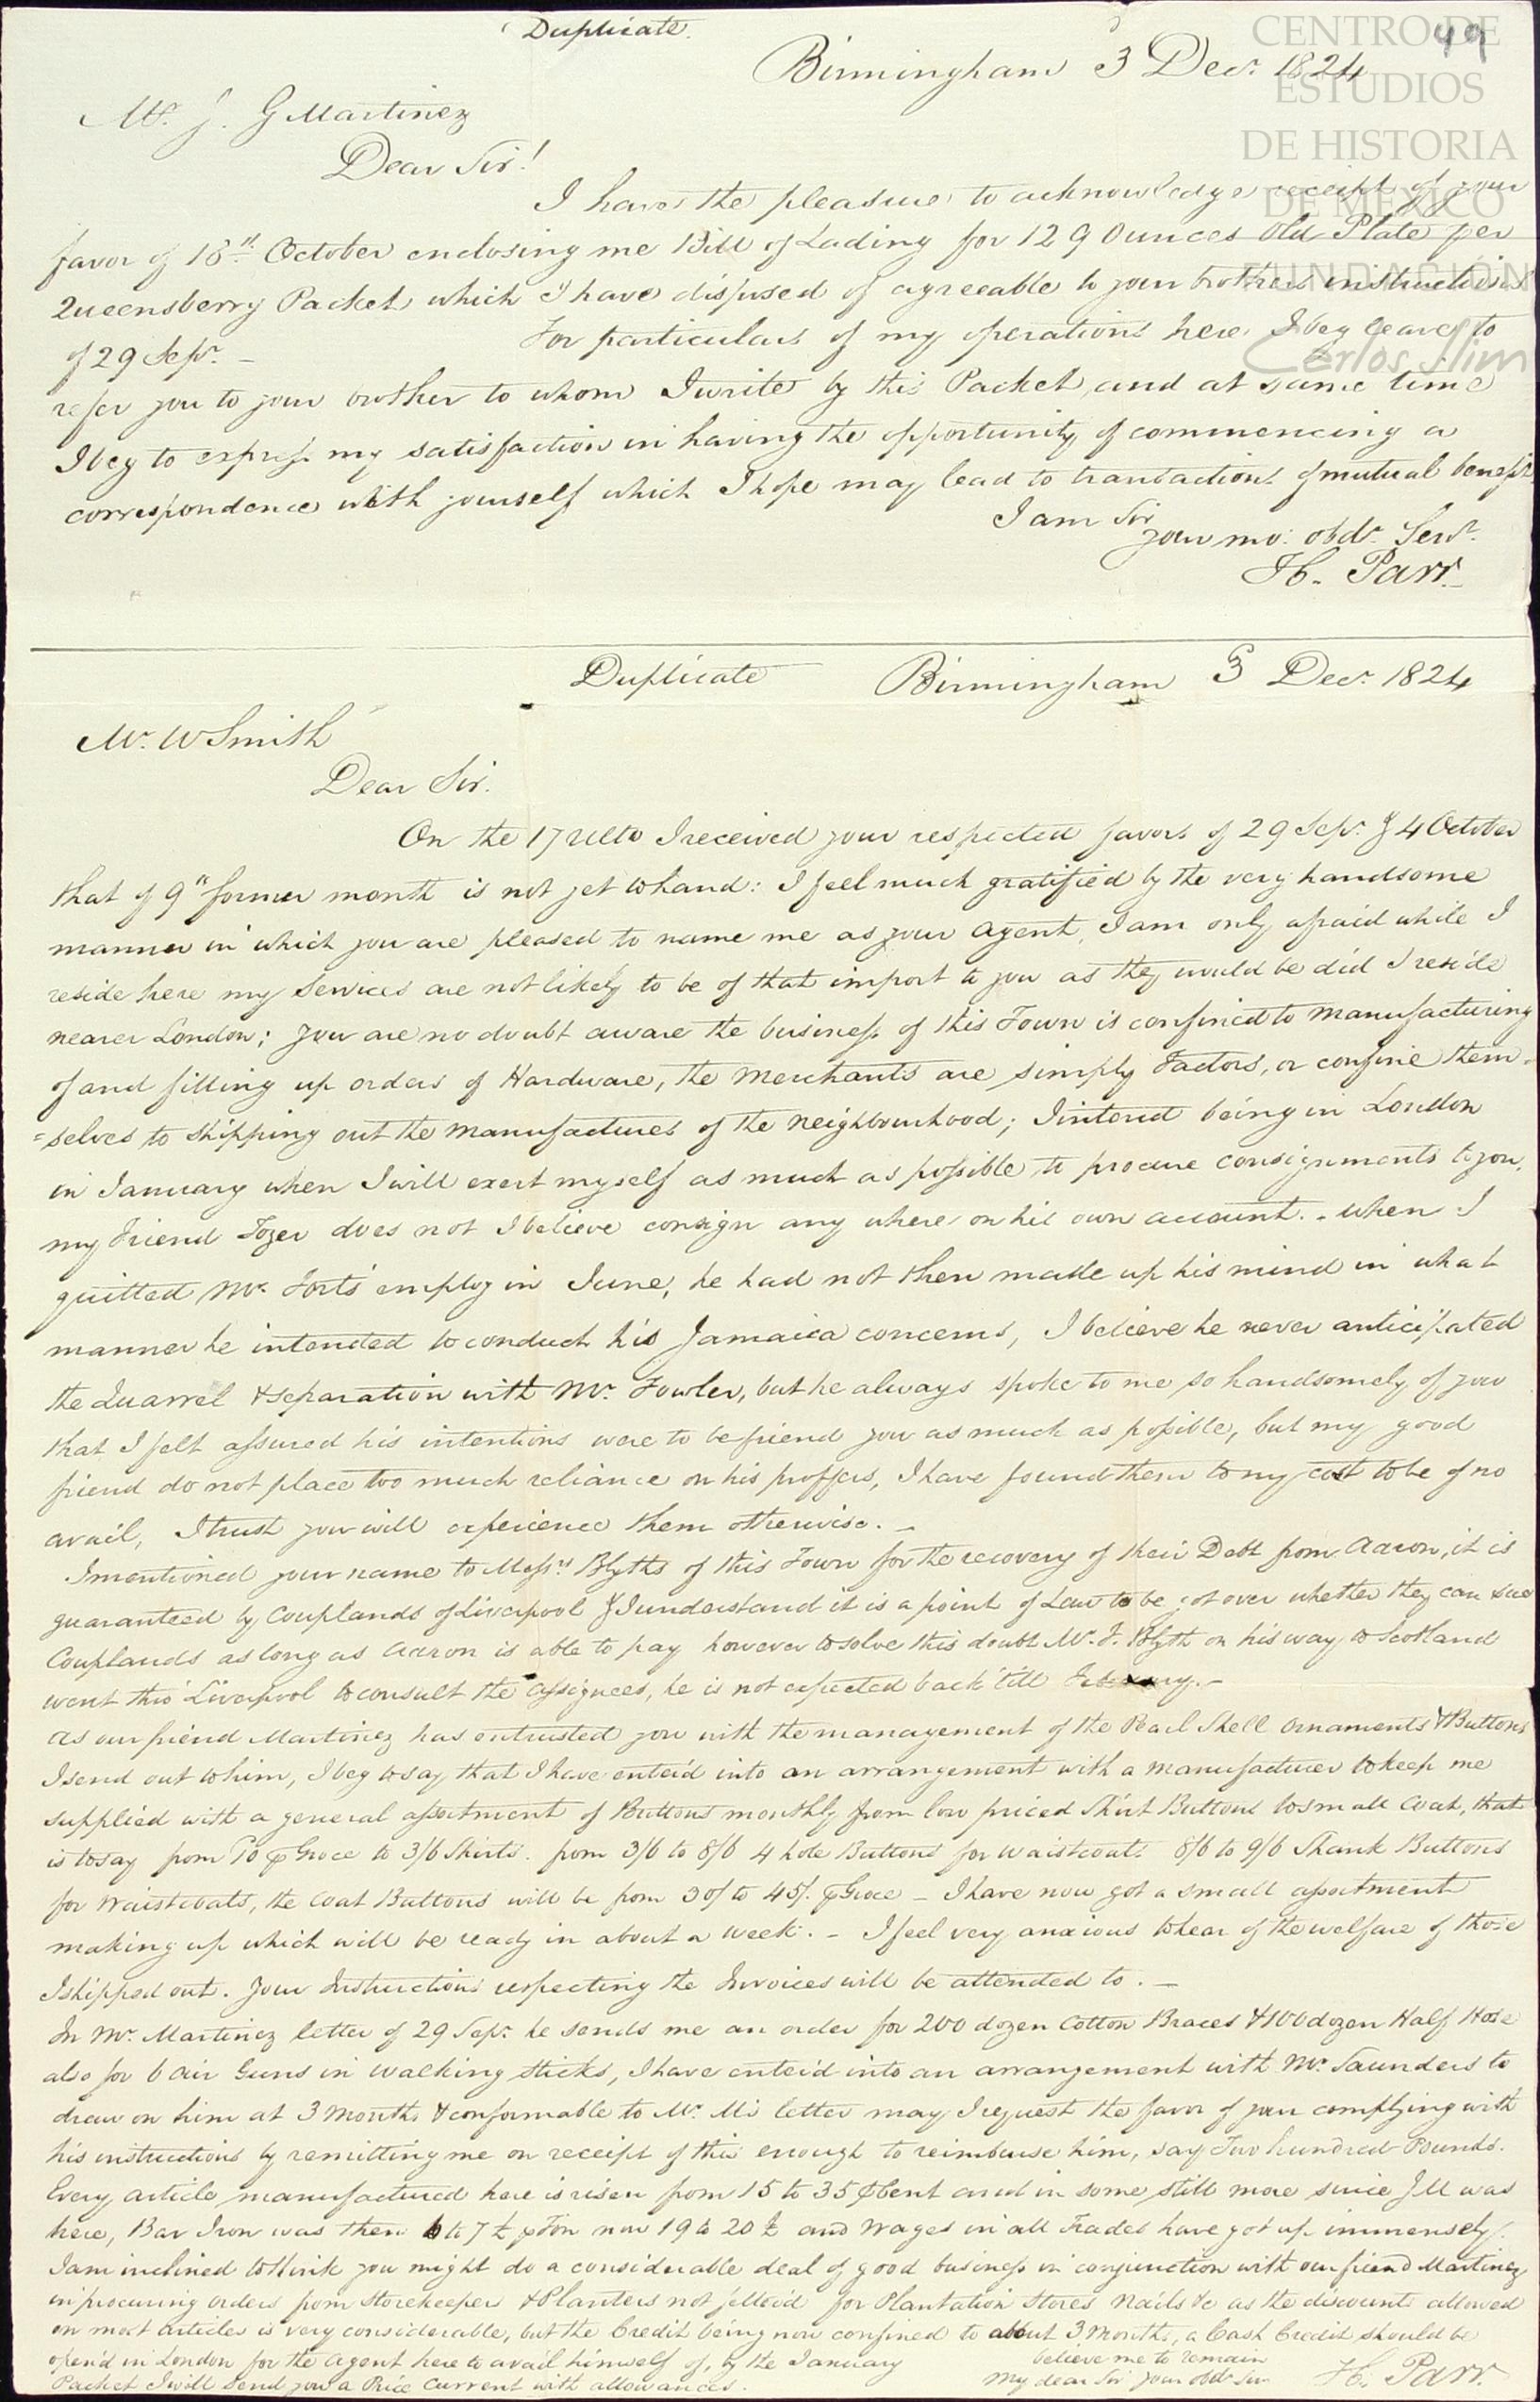 Duplicate.
49
Birmingham 3 Decr. 1824
Mr. J. G Martinez
Dear Sir!
I have the pleasure to acknowledge receipt of your
favor of 18th October enclosing me Bill of Lading for 129 Ounces Old Plate per
Queensberry Packet which I have disposed of agreeable to your brothers instructions
of 29 Sepr. –
For particulars of my operations here I beg leave to
refer you to your brother to whom I write by this Packet, and at same time
I beg to express my satisfaction in having the opportunity of commencing a
correspondence with yourself which I hope may lead to transactions of mutual benefit
I am Sir
your mo: obdt. Servt.
H. Parr.
Duplicate Birmingham 3 Decr. 1824
Mr. W Smith
Dear Sir.
On the 17 Ulto I received your respected favors of 29 Sepr. & 4 October
that of 9th former month is not yet to hand: I feel much gratified by the very handsome
manner in which you are pleased to name me as your agent, I am only afraid while I
reside here my Services are not likely to be of that import to you as they would be did I reside
nearer London; you are no doubt aware the business of this Town is confined to manufacturing
of and filling up orders of Hardware, the Merchants are simply Factors, or confine them=
=selves to shipping out the manufactures of the neighbourhood; I intend being in London
in January when I will exert myself as much as possible to procure consignments to you,
my Friend Tozer does not I believe consign any where on his own account. – When I
quitted Mr. Forts employ in June, he had not then made up his mind in what
manner he intended to conduct his Jamaica concerns, I believe he never anticipated
the Quarrel & separation with Mr. Fowler, but he always spoke to me so handsomely of you
that I felt assured his intentions were to befriend you as much as possible, but my good
friend do not place too much reliance on his proffers, I have found them to my cost to be of no
avail, I trust you will experience them otherwise. –
I mentioned your name to Messrs Blyths of this Town for the recovery of their Debt from Aaron, it is
guaranteed by Couplands of Liverpool & I understand it is a point of Law to be got over whether they can sue
Couplands as long as Aaron is able to pay however to solve this doubt Mr. J. Blyth on his way to Scotland
went thro' Liverpool to consult the assignees, he is not expected back till February. –
As our friend Martinez has entrusted you with the management of the Pearl Shell Ornaments & Buttons
I send out to him, I beg to say that I have enter'd into an arrangement with a manufacturer to keep me
supplied with a general assortment of Buttons monthly from low priced Shirt Buttons to small Coat, that
is to say from ⅌ Groce to 3/6 Shirts. from 3/6 to 8/6 4 hole Buttons for waistcoats 8/6 to 9/6 Shank Buttons
for Waistcoats, the Coat Buttons will be from 30/ to 45/. ⅌ Groce – I have now got a small assortment
making up which will be ready in about a week. – I feel very anxious to hear of the welfare of those
I shipped out. Your Instructions respecting the Invoices will be attended to. –
In Mr. Martinez letter of 29 Sepr. he sends me an order for 200 dozen Cotton Braces & 100 dozen Half Hose
also for 6 Air Guns in walking sticks, I have enter'd into an arrangement with Mr. Saunders to
draw on him at 3 months & conformable to Mr. M's letter may I request the favor of your complying with
his instructions by remitting me on receipt of this enough to reimburse him, say Two hundred Pounds.
Every article manufactured here is risen from 15 to 35 ⅌ Cent and in some still more since J M was
here, Bar Iron was then 6 to 7 £ ⅌ Ton now 19 to 20 £ and wages in all Trades have got up immensely.
I am inclined to think you might do a considerable deal of good business in conjunction with our friend Martinez
in procuring orders from Storekeepers & Planters not for Plantation Stores Nails &c as the discounts allowed
on most articles is very considerable, but the Credit being now confined to about 3 Months, a Cash Credit should be
open'd in London for the Agent here to avail himself of, by the January
Packet I will send you a Price Current with allowances.
believe me to remain
my dear Sir your obdt Sert
H. Parr.
CENTRO DE
ESTUDIOS
DE HISTORIA
DE MÉXICO
FUNDACIÓN
Carlos Slim